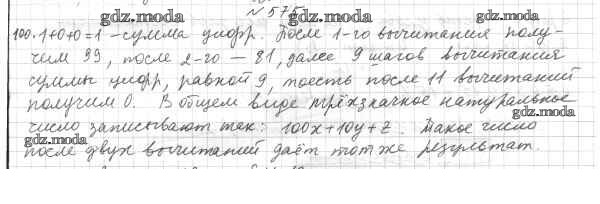 № 575
gdz.moda gdz.moda
100. 1+0+0=1 - сумма цифр. После 1-го вычитания полу-
gdz.moda
чим 99, после 2-го — 81, далее 9 шагов вычитания
суммы цифр, равной 9, тоесть после 11 вычитаний
gdz.moda
получим 0. В общем виде трёхзначное натуральное
gdz.moda
число записывают так: 100x+10y+z. Такое число
gdz.moda
после двух вычитаний даёт тот же результат.